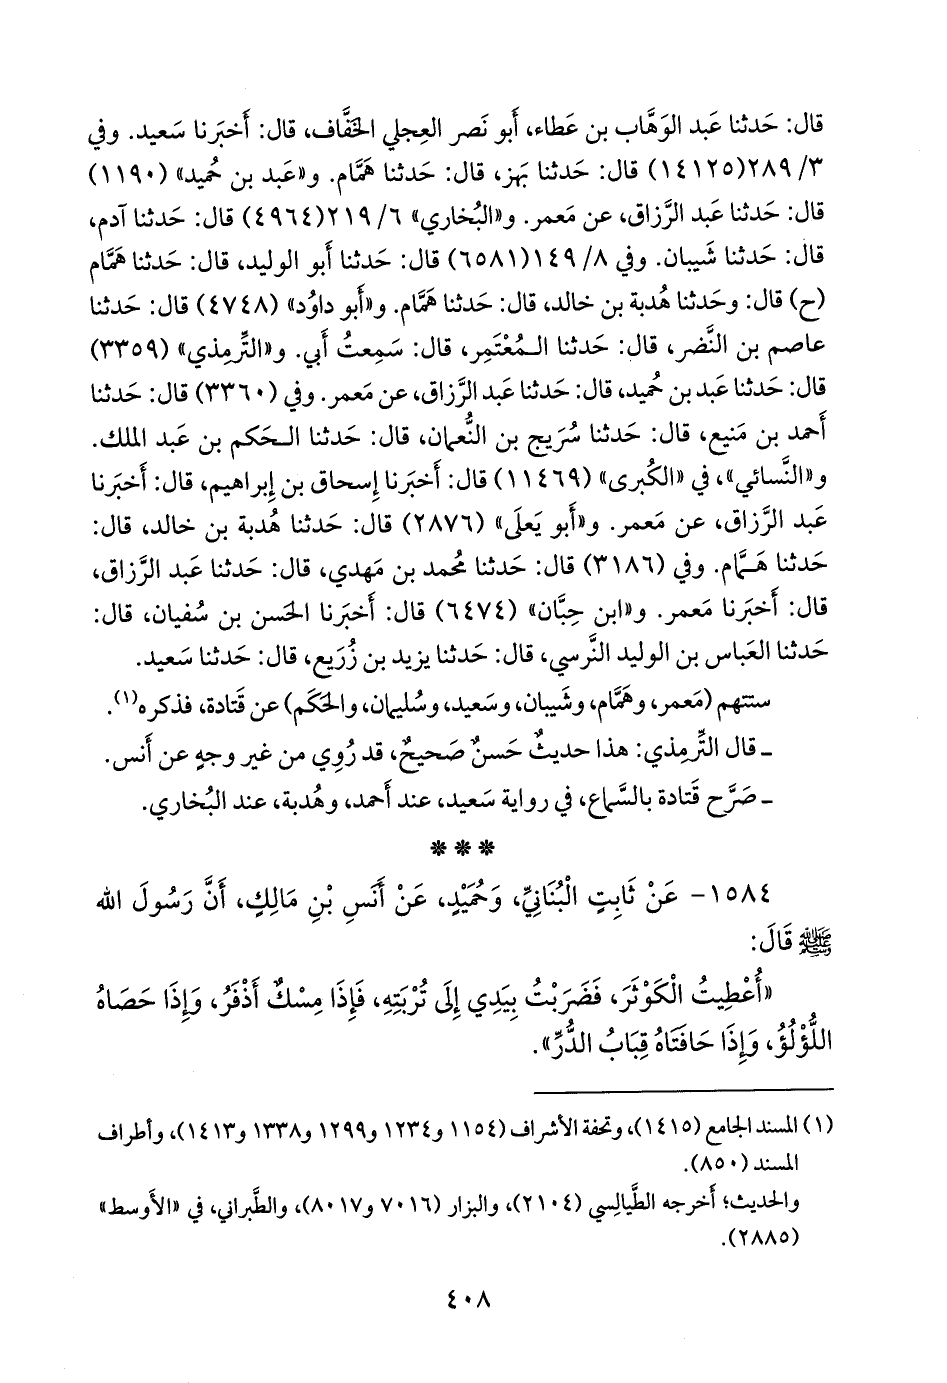 قال: حَدثنا عَبد الوَهَّاب بن عَطاء، أَبو نَصر العِجلي الخَفَّاف، قال: أَخبَرنا سَعيد. وفي
٣/ ٢٨٩(١٤١٢٥) قال: حَدثنا بَهز، قال: حَدثنا هَمَّام. و«عَبد بن حُميد» (١١٩٠)
قال: حَدثنا عَبد الرَّزاق، عن مَعمر. و«البُخاري» ٦/ ٢١٩(٤٩٦٤) قال: حَدثنا آدم،
قال: حَدثنا شَيبان. وفي ٨/ ١٤٩(٦٥٨١) قال: حَدثنا أَبو الوليد، قال: حَدثنا هَمَّام
(ح) قال: وحَدثنا هُدبة بن خالد، قال: حَدثنا هَمَّام. و«أَبو داوُد» (٤٧٤٨) قال: حَدثنا
عاصم بن النَّضر، قال: حَدثنا الـمُعْتَمِر، قال: سَمِعتُ أَبي. و«التِّرمِذي» (٣٣٥٩)
قال: حَدثنا عَبد بن حُميد، قال: حَدثنا عَبد الرَّزاق، عن مَعمر. وفي (٣٣٦٠) قال: حَدثنا
أَحمد بن مَنيع، قال: حَدثنا سُرَيج بن النُّعمان، قال: حَدثنا الـحَكم بن عَبد الملك.
و«النَّسائي»، في «الكُبرى» (١١٤٦٩) قال: أَخبَرنا إِسحاق بن إِبراهيم، قال: أَخبَرنا
عَبد الرَّزاق، عن مَعمر. و«أَبو يَعلَى» (٢٨٧٦) قال: حَدثنا هُدبة بن خالد، قال:
حَدثنا هَـمَّام. وفي (٣١٨٦) قال: حَدثنا مُحمد بن مَهدي، قال: حَدثنا عَبد الرَّزاق،
قال: أَخبَرنا مَعمر. و«ابن حِبَّان» (٦٤٧٤) قال: أَخبَرنا الحَسن بن سُفيان، قال:
حَدثنا العَباس بن الوليد النَّرسي، قال: حَدثنا يزيد بن زُرَيع، قال: حَدثنا سَعيد.
ستتهم (مَعمر، وهَمَّام، وشَيبان، وسَعيد، وسُليمان، والحَكَم) عن قَتادة، فذكره(١).
ـ قال التِّرمِذي: هذا حديثٌ حَسنٌ صَحيحٌ، قد رُوِي من غير وجهٍ عن أَنس.
ـ صَرَّح قَتادة بالسَّماع، في رواية سَعيد، عند أَحمد، وهُدبة، عند البُخاري.
* * *
١٥٨٤- عَنْ ثَابِتٍ الْبُنَانِيِّ، وَحُمَيْدٍ، عَنْ أَنَسِ بْنِ مَالِكٍ، أَنَّ رَسُولَ الله
ﷺ قَالَ:
«أُعْطِيتُ الْكَوْثَرَ، فَضَرَبْتُ بِيَدِي إِلَى تُرْبَتِهِ، فَإِذَا مِسْكٌ أَذْفَرُ، وَإِذَا حَصَاهُ
اللُّؤْلُؤُ، وَإِذَا حَافَتَاهُ قِبَابُ الدُّرِّ».
(١) المسند الجامع (١٤١٥)، وتحفة الأشراف (١١٥٤ و١٢٣٤ و١٢٩٩ و١٣٣٨ و١٤١٣)، وأطراف
المسند (٨٥٠).
والحديث؛ أَخرجه الطَّيالِسي (٢١٠٤)، والبزار (٧٠١٦ و٨٠١٧)، والطَّبراني، في «الأَوسط»
(٢٨٨٥).
٤٠٨